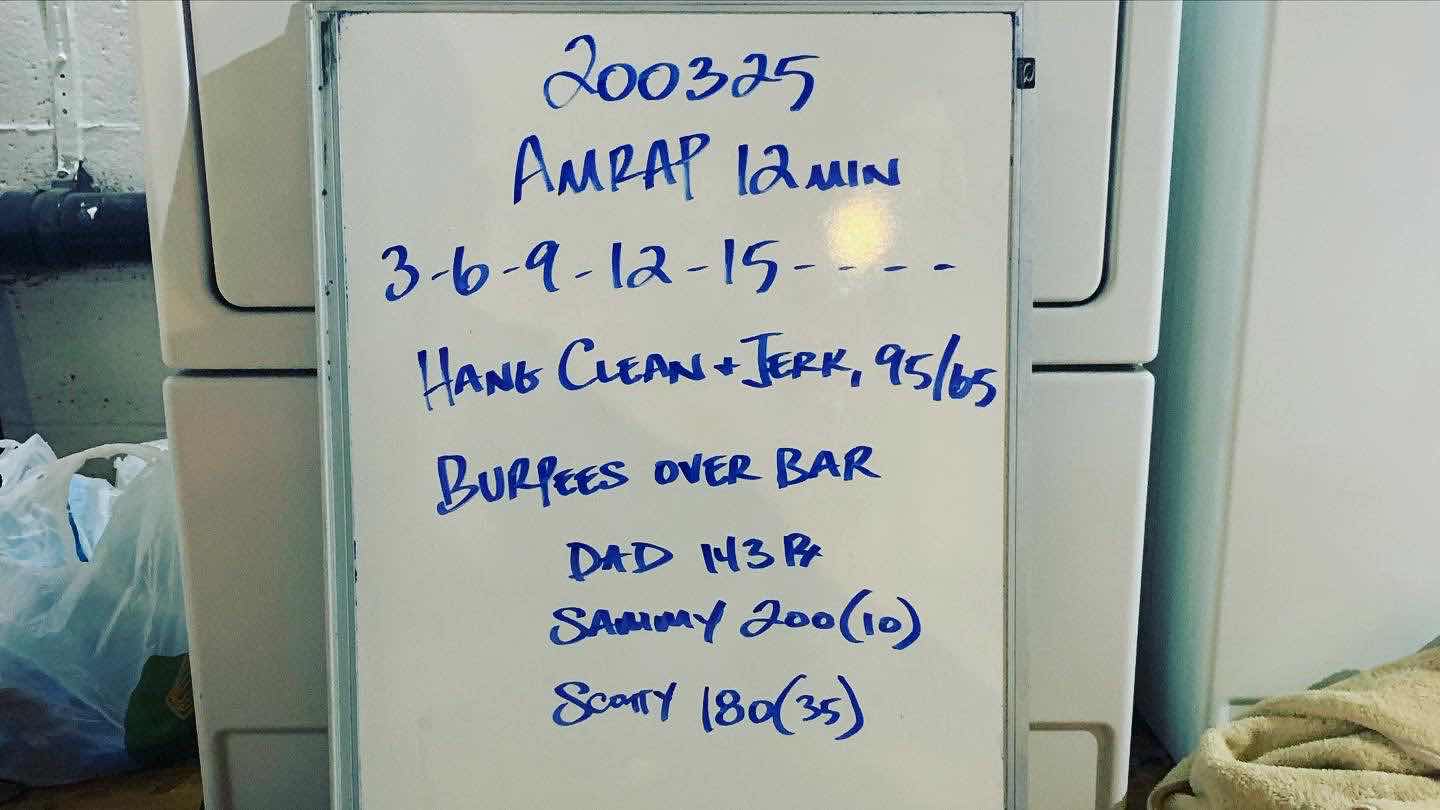 200325
AMRAP 12 MIN
3-6-9-12-15-----
HANG CLEAN + JERK, 95/65
BURPEES OVER BAR
DAD 143 Rx
SAMMY 200(10)
SCOTTY 180(35)